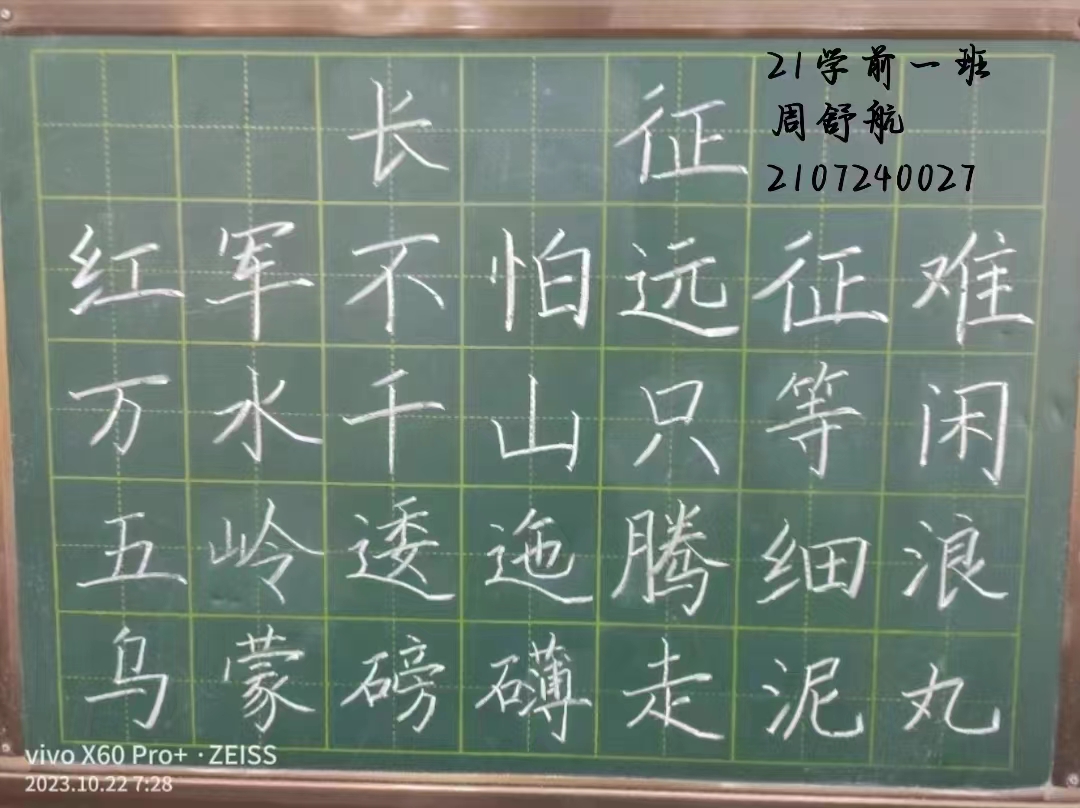 21学前一班
周舒航
2107240027
长征
红军不怕远征难
万水千山只等闲
五岭逶迤腾细浪
乌蒙磅礴走泥丸
vivo X60 Pro+ · ZEISS
2023.10.22 7:28